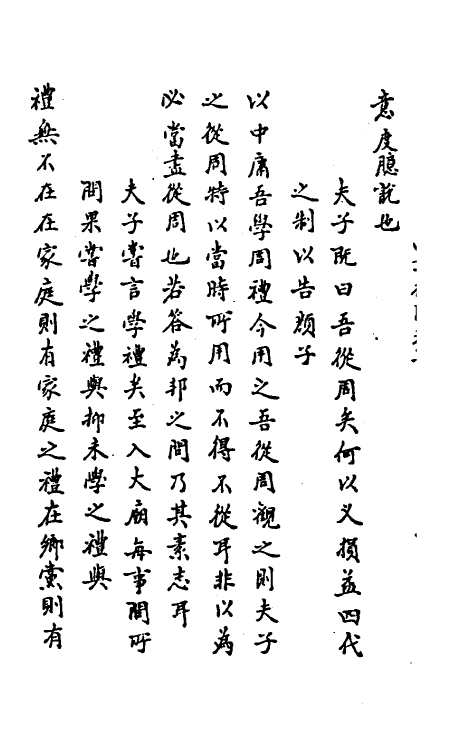 意度臆說也
夫子既曰吾從周矣何以又損益四代
之制以告顏子
以中庸吾學周禮今用之吾從周觀之則夫子
之從周特以當時所用而不得不從耳非以為
必當盡從周也若答為邦之問乃其素志耳
夫子嘗言學禮矣至入大廟每事問所
問果嘗學之禮與抑未學之禮與
禮無不在在家庭則有家庭之禮在鄉黨則有